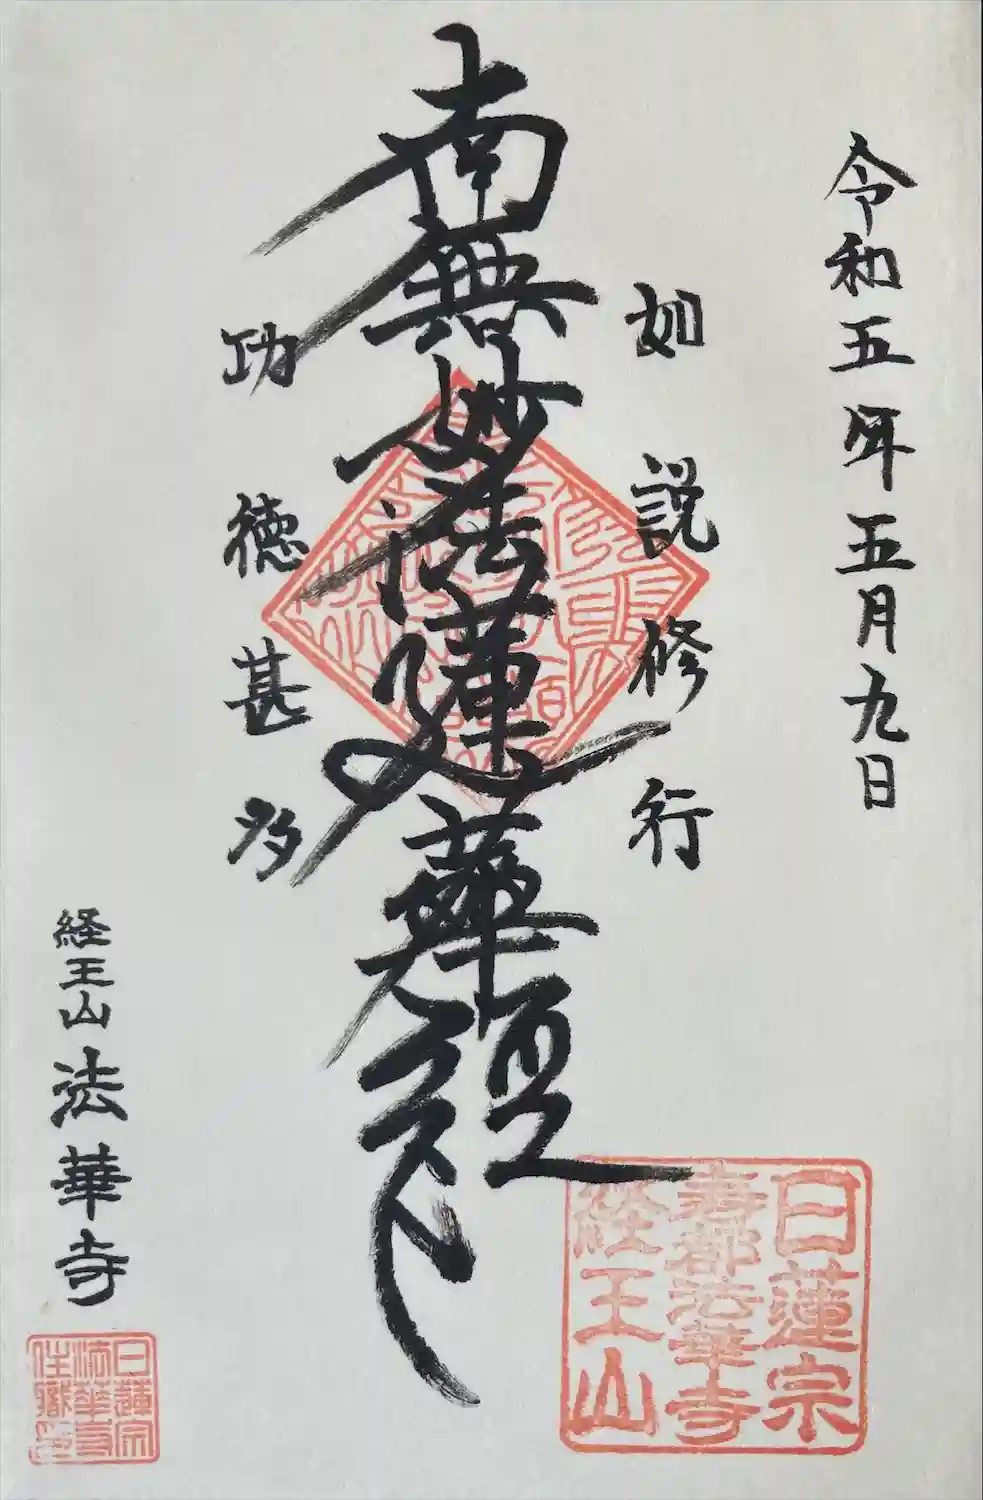 令和五年五月九日
如説修行
南無妙法蓮華経
功徳甚多
経王山 法華寺
日蓮宗
寿都法華寺
経王山
日蓮宗
法華寺
住職印